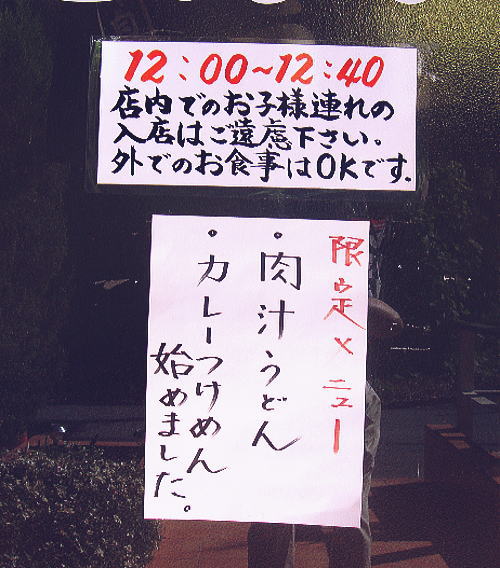 12:00~12:40
店内でのお子様連れの
入店はご遠慮下さい。
外でのお食事はOKです.
限定メニュー
・肉汁うどん
・カレーつけめん
始めました。